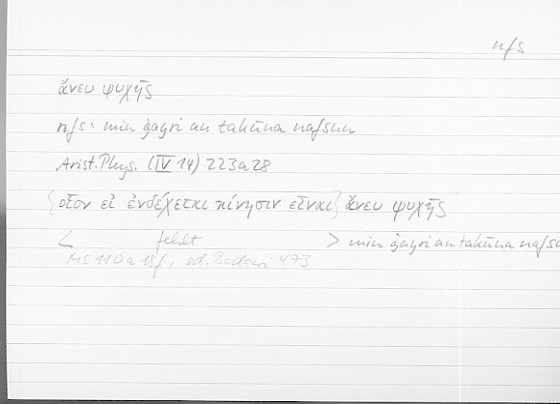 nfs
ἄνευ ψυχῆς
nfs: min ġayri an takūna nafsun
Arist. Phys. (IV 14) 223a28
{οἷον εἰ ἐνδέχεται κίνησιν εἶναι} ἄνευ ψυχῆς
< fehlt > min ġayri an takūna nafsu
MS 110a18f, ed. Badawi 473